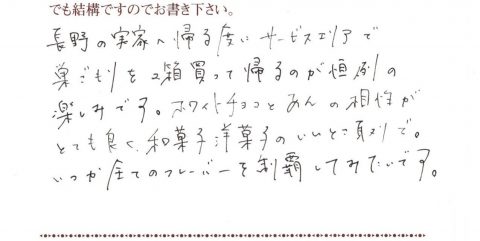 でも結構ですのでお書き下さい。
長野の実家へ帰る度にサービスエリアで
巣ごもりを2箱買って帰るのが恒例の
楽しみです。ホワイトチョコとあんの相性が
とても良く、和菓子洋菓子のいいとこ取りで。
いつか全てのフレーバーを制覇してみたいです。